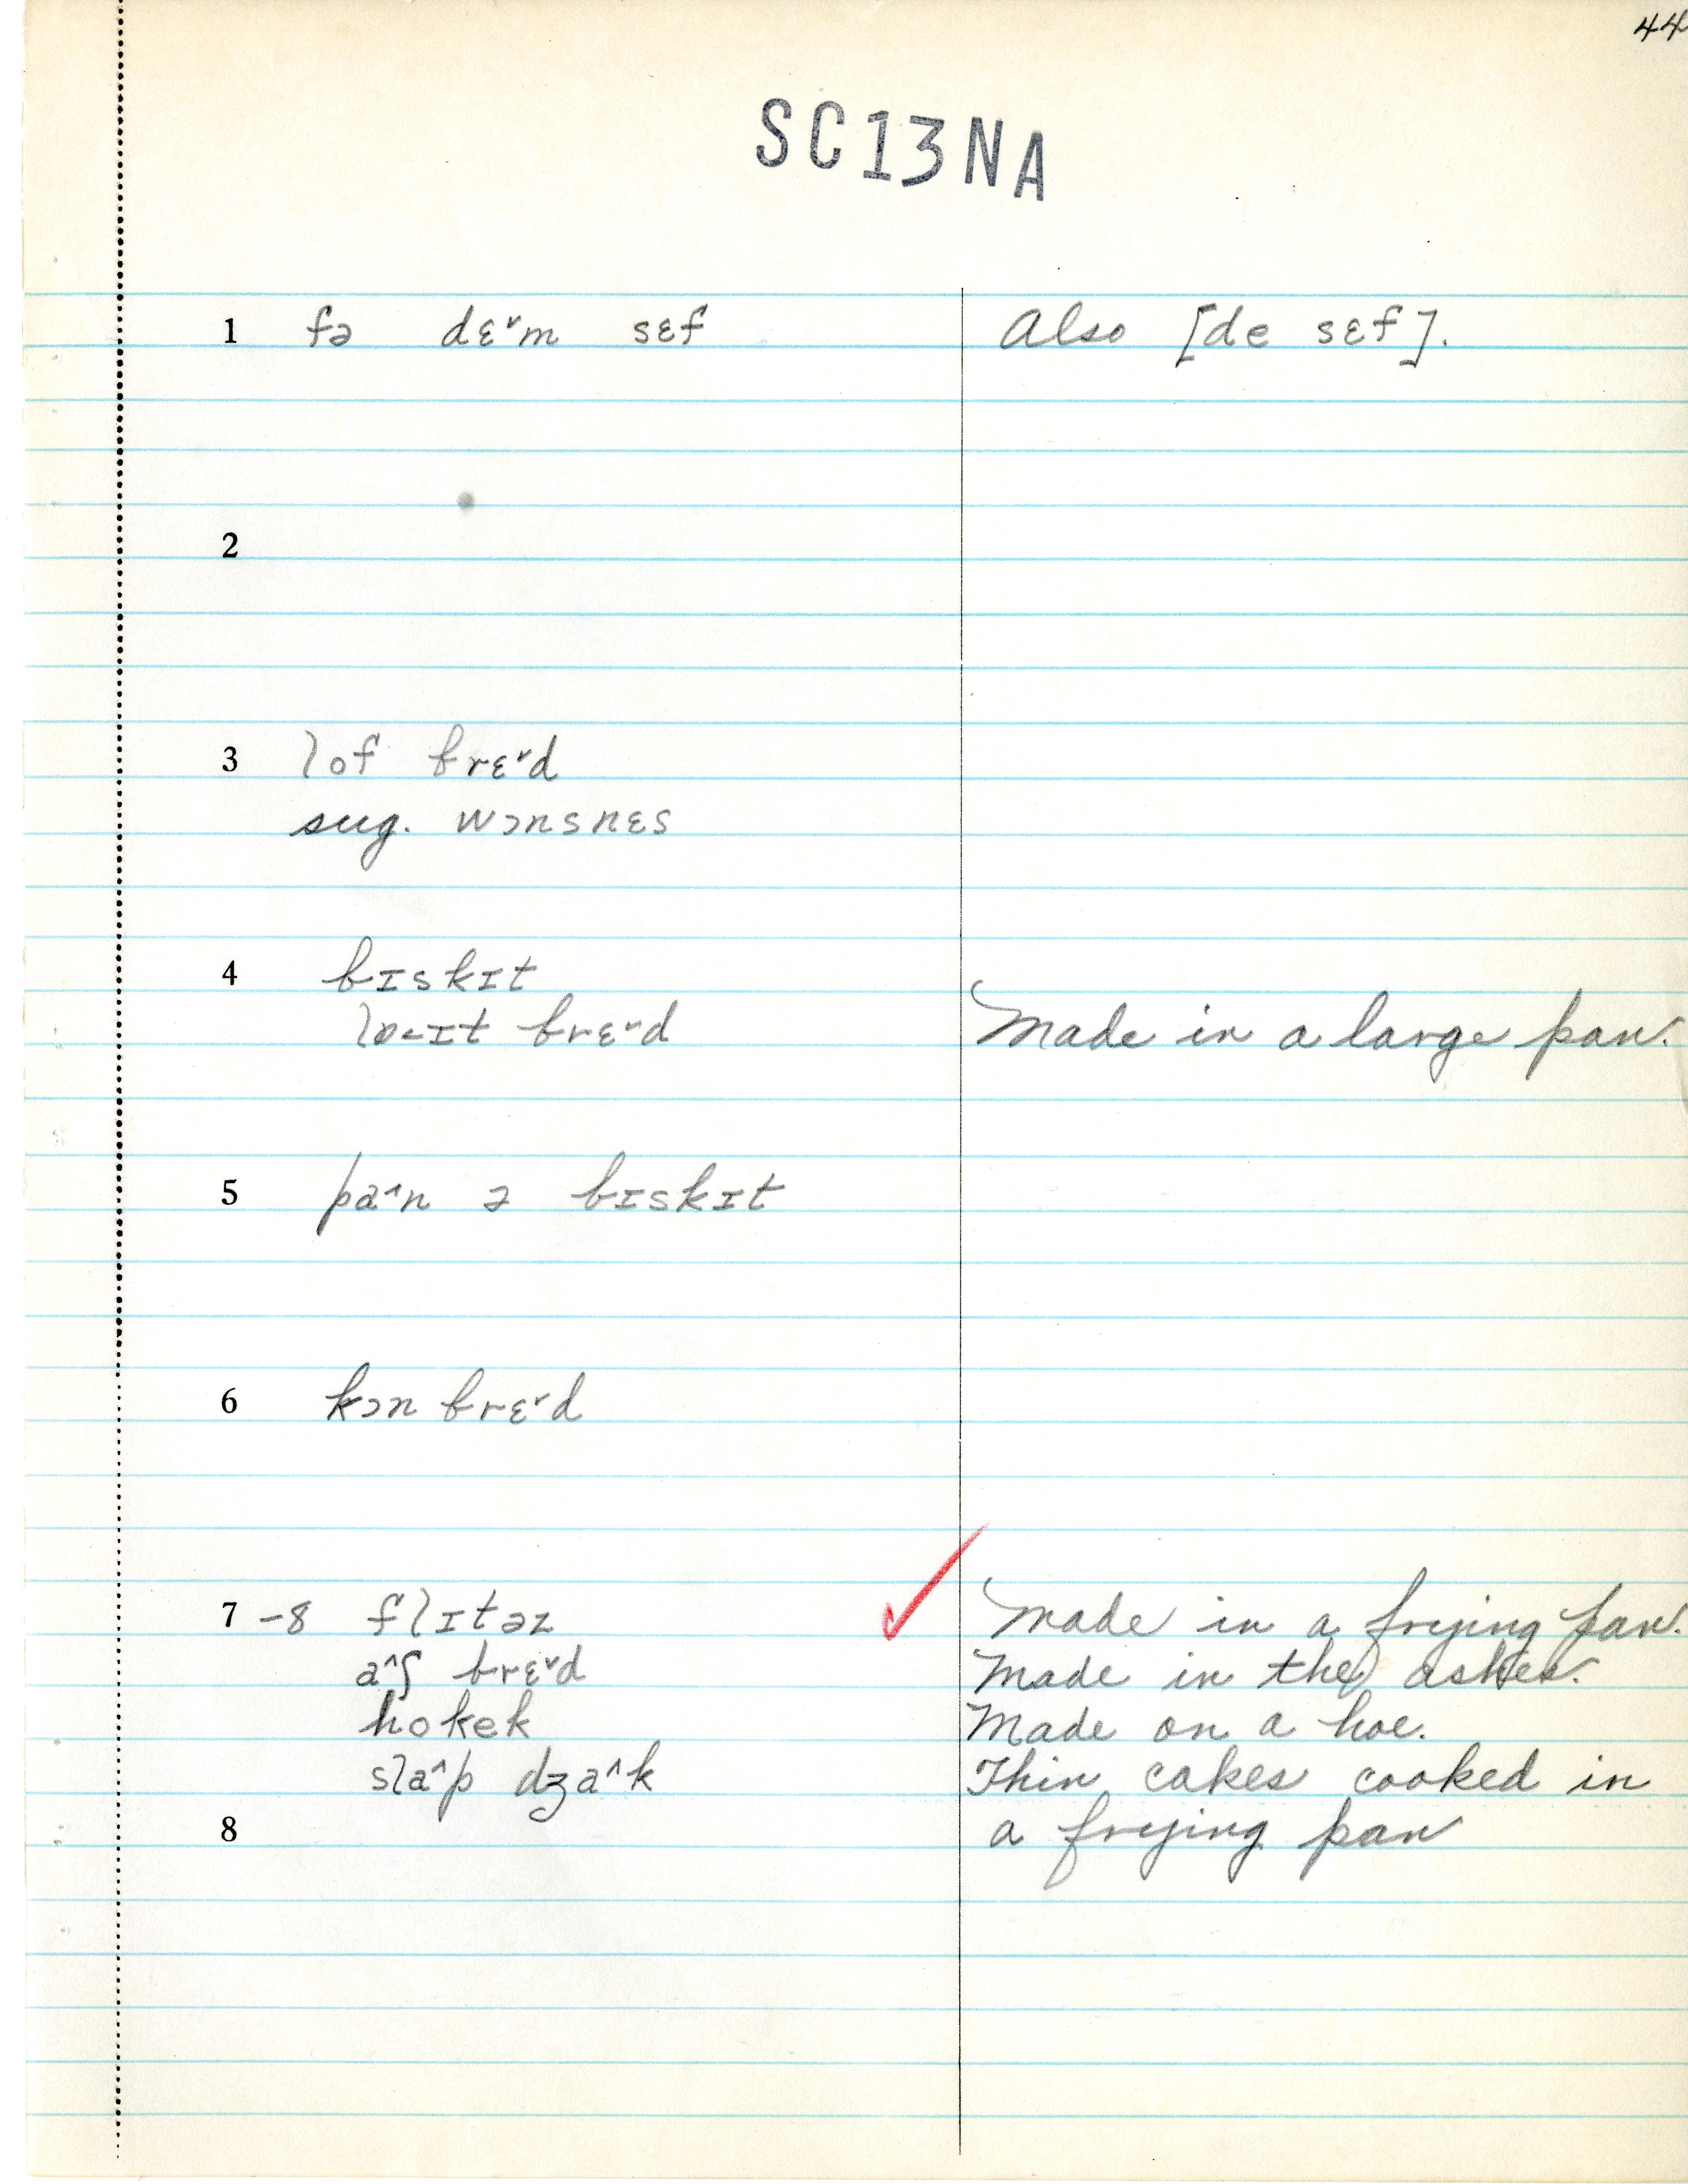 44
SC13NA
1 fə dɛ˅m sɛf Also [de sɛf].
2
3 lof brɛ˅d
sug. wɔnsnɛs
4 bɪskɪt
lɒ˂ɪt brɛ˅d Made in a large pan.
5 pa^n ə bɪskɪt
6 kɔn brɛ˅d
7 -8 flɪtəz Made in a frying pan.
a^ʃ brɛ˅d Made in the ashes.
hokek Made on a hoe.
sla^p dʒa^k Thin cakes cooked in
8 a frying pan